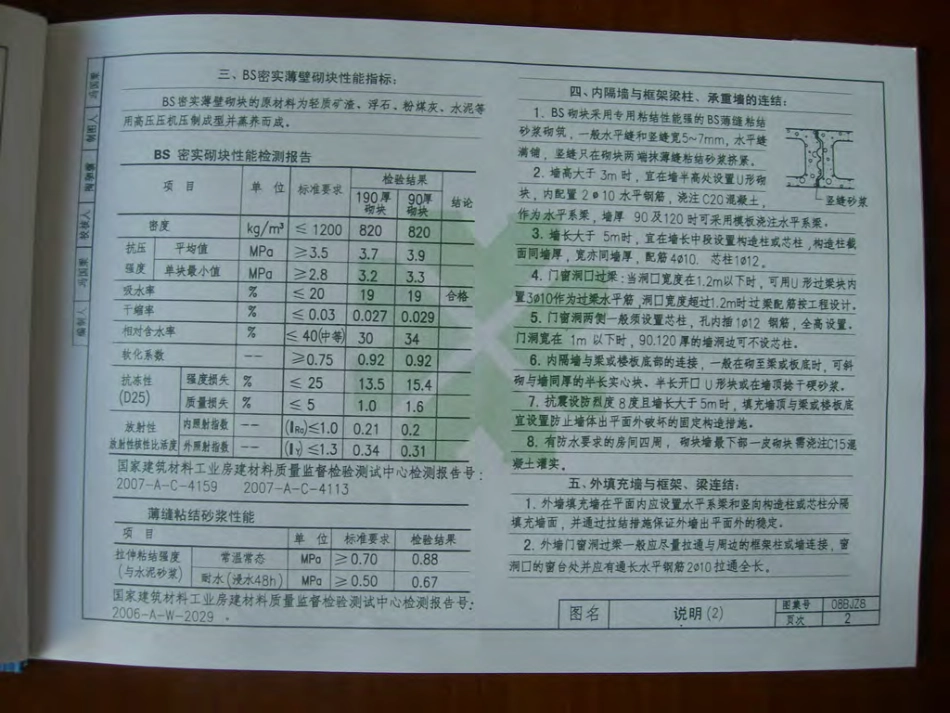 三、BS密实薄壁砌块性能指标:
BS密实薄壁砌块的原材料为轻质矿渣、浮石、粉煤灰、水泥等
用高压压机压制成型并蒸养而成。
BS 密实砌块性能检测报告
项 目 单 位 标准要求 检验结果 结论
190厚砌块 90厚砌块
密度 kg/m³ ≤ 1200 820 820
抗压强度 平均值 MPa ≥3.5 3.7 3.9
单块最小值 MPa ≥2.8 3.2 3.3
吸水率 % ≤ 20 19 19 合格
干缩率 % ≤ 0.03 0.027 0.029
相对含水率 % ≤ 40(中等) 30 34
软化系数 -- ≥0.75 0.92 0.92
抗冻性(D25) 强度损失 % ≤ 25 13.5 15.4
质量损失 % ≤ 5 1.0 1.6
放射性 内照射指数 -- (IRa)≤1.0 0.21 0.2
放射性核性比活度 外照射指数 -- (Iγ)≤1.3 0.34 0.31
国家建筑材料工业房建材料质量监督检验测试中心检测报告号:
2007-A-C-4159 2007-A-C-4113
薄缝粘结砂浆性能
项 目 单 位 标准要求 检验结果
拉伸粘结强度(与水泥砂浆) 常温常态 MPa ≥ 0.70 0.88
耐水(浸水48h) MPa ≥ 0.50 0.67
国家建筑材料工业房建材料质量监督检验测试中心检测报告号:
2006-A-W-2029 。
四、内隔墙与框架梁柱、承重墙的连结:
1. BS砌块采用专用粘结性能强的BS薄缝粘结
砂浆砌筑,一般水平缝和竖缝宽5~7mm,水平缝
满铺,竖缝只在砌块两端抹薄缝粘结砂浆挤紧。
2. 墙高大于 3m 时,宜在墙半高处设置U形砌
块,内配置 2ϕ10 水平钢筋,浇注 C20混凝土,
作为水平系梁,墙厚 90及120 时可采用模板浇注水平系梁。
竖缝砂浆
3. 墙长大于 5m时,宜在墙长中段设置构造柱或芯柱,构造柱截
面同墙厚,宽亦同墙厚,配筋 4ϕ10. 芯柱1ϕ12。
4. 门窗洞口过梁:当洞口宽度在1.2m以下时,可用U形过梁块内
置3ϕ10作为过梁水平筋,洞口宽度超过1.2m时过梁配筋按工程设计。
5. 门窗洞两侧一般须设置芯柱,孔内插 1ϕ12 钢筋,全高设置。
门洞宽在 1m 以下时,90.120厚的墙洞边可不设芯柱。
6. 内隔墙与梁或楼板底部的连接,一般在砌至梁或板底时,可斜
砌与墙同厚的半长实心块、半长开口 U 形块或在墙顶捻干硬砂浆。
7. 抗震设防烈度 8度且墙长大于 5m时,填充墙顶与梁或楼板底
宜设置防止墙体出平面外破坏的固定构造措施。
8. 有防水要求的房间四周,砌块墙最下部一皮砌块需浇注C15混
凝土灌实。
五、外填充墙与框架、梁连结:
1. 外墙填充墙在平面内应设置水平系梁和竖向构造柱或芯柱分隔
填充墙面,并通过拉结措施保证外墙出平面外的稳定。
2. 外墙门窗洞过梁一般应尽量拉通与周边的框架柱或墙连接,窗
洞口的窗台处并应有通长水平钢筋 2ϕ10 拉通全长。
图名 说明(2) 图集号 08BJZ8
页次 2
制图人
校核人
冯国要
编制人